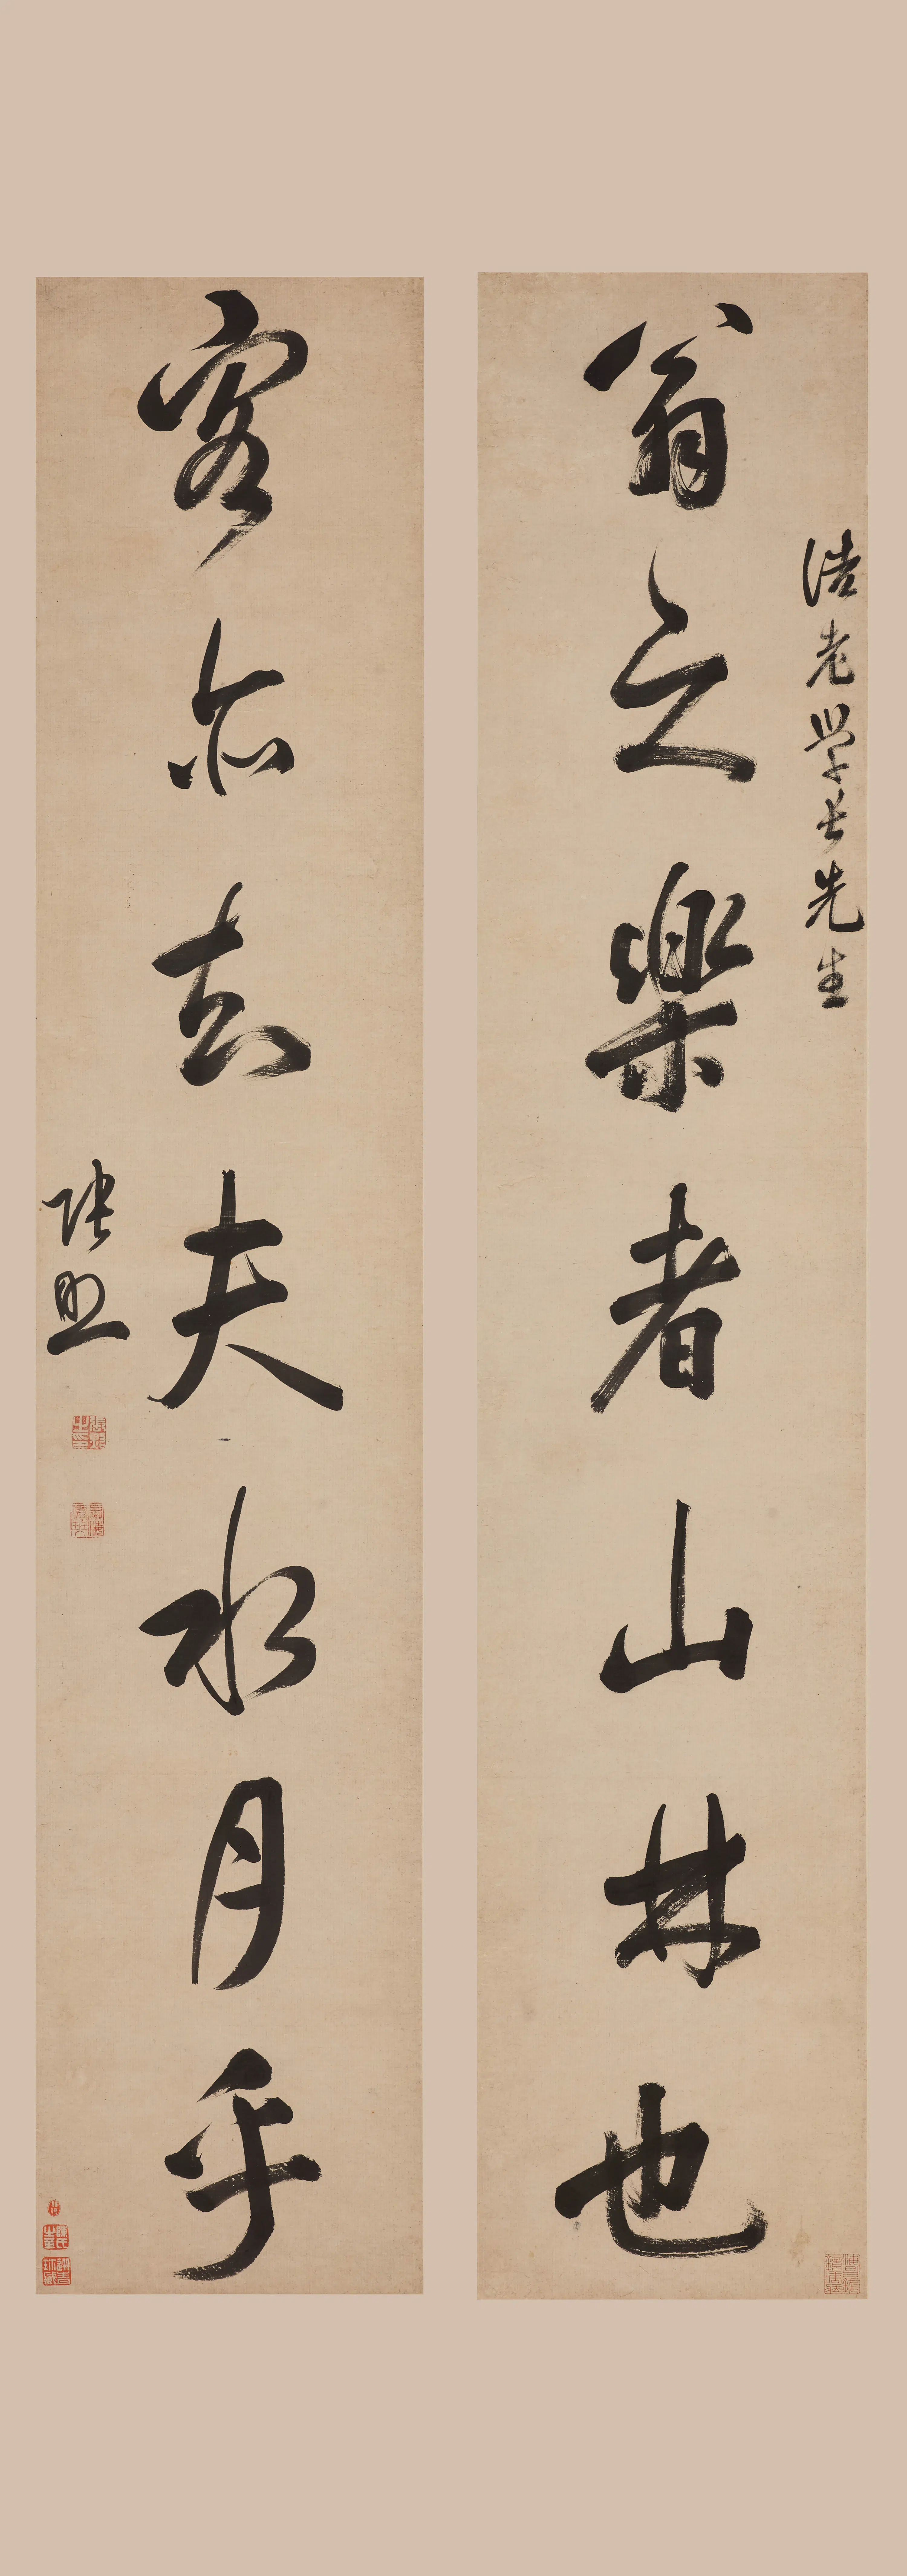 浩老學長先生
翁之樂者山林也
客亦知夫水月乎
張照
張照之印